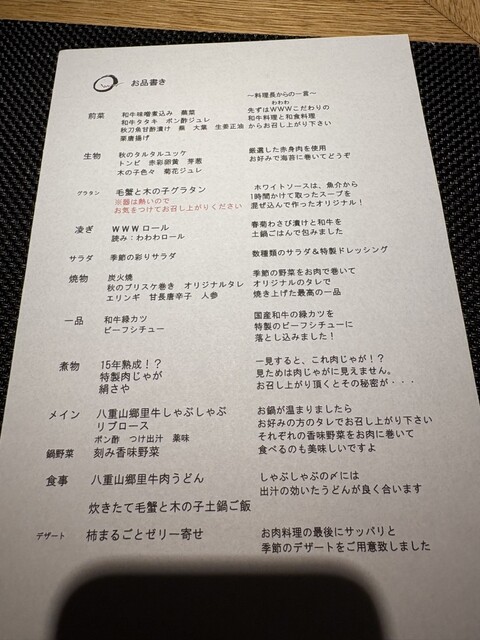 お品書き
~料理長からの一言~
前菜 和牛味噌煮込み 蕪菜
和牛タタキ ポン酢ジュレ
秋刀魚甘酢漬け 蕪 大葉 生姜正油
栗唐揚げ
わわわ
先ずはWWWこだわりの
和牛料理と和食料理
からお召し上がり下さい
生物 秋のタルタルユッケ
トンビ 赤彩卵黄 芽葱
木の子色々 菊花ジュレ
厳選した赤身肉を使用
お好みで海苔に巻いてどうぞ
グラタン 毛蟹と木の子グラタン
※器は熱いので
お気をつけてお召し上がりください
ホワイトソースは、魚介から
1時間かけて取ったスープを
混ぜ込んで作ったオリジナル!
凌ぎ WWWロール
読み:わわわロール
春菊わさび漬けと和牛を
土鍋ごはんで包みました
サラダ 季節の彩りサラダ
数種類のサラダ&特製ドレッシング
焼物 炭火焼
秋のブリスケ巻き オリジナルタレ
エリンギ 甘長唐辛子 人参
季節の野菜をお肉で巻いて
オリジナルのタレで
焼き上げた最高の一品
一品 和牛縁カツ
ビーフシチュー
国産和牛の縁カツを
特製のビーフシチューに
落とし込みました!
煮物 15年熟成!?
特製肉じゃが
絹さや
一見すると、これ肉じゃが!?
見ためは肉じゃがに見えません。
お召し上がり頂くとその秘密が・・・
メイン 八重山郷里牛しゃぶしゃぶ
リブロース
ポン酢 つけ出汁 薬味
鍋野菜 刻み香味野菜
お鍋が温まりましたら
お好みの方のタレでお召し上がり下さい
それぞれの香味野菜をお肉に巻いて
食べるのも美味しいですよ
食事 八重山郷里牛肉うどん
炊きたて毛蟹と木の子土鍋ご飯
しゃぶしゃぶの〆には
出汁の効いたうどんが良く合います
デザート 柿まるごとゼリー寄せ
お肉料理の最後にサッパリと
季節のデザートをご用意致しました